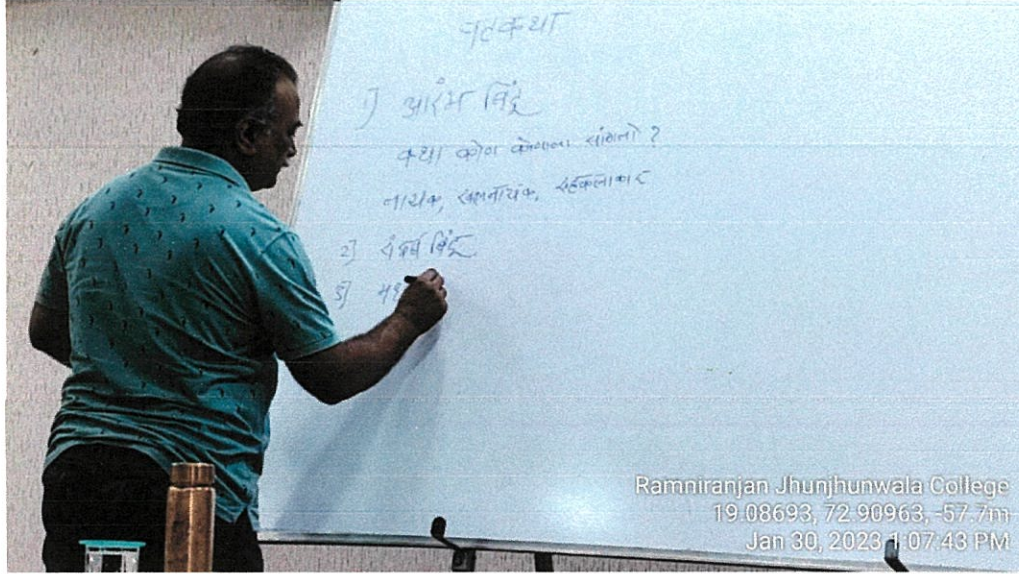 पटकथा
१) आरंभ बिंदू
कथा कोण कोणाला सांगतो ?
नायक, खलनायक, सहकलाकार
२) संघर्ष बिंदू
३) मध
Ramniranjan Jhunjhunwala College
19.08693, 72.90963, -57.7m
Jan 30, 2023 1:07:43 PM